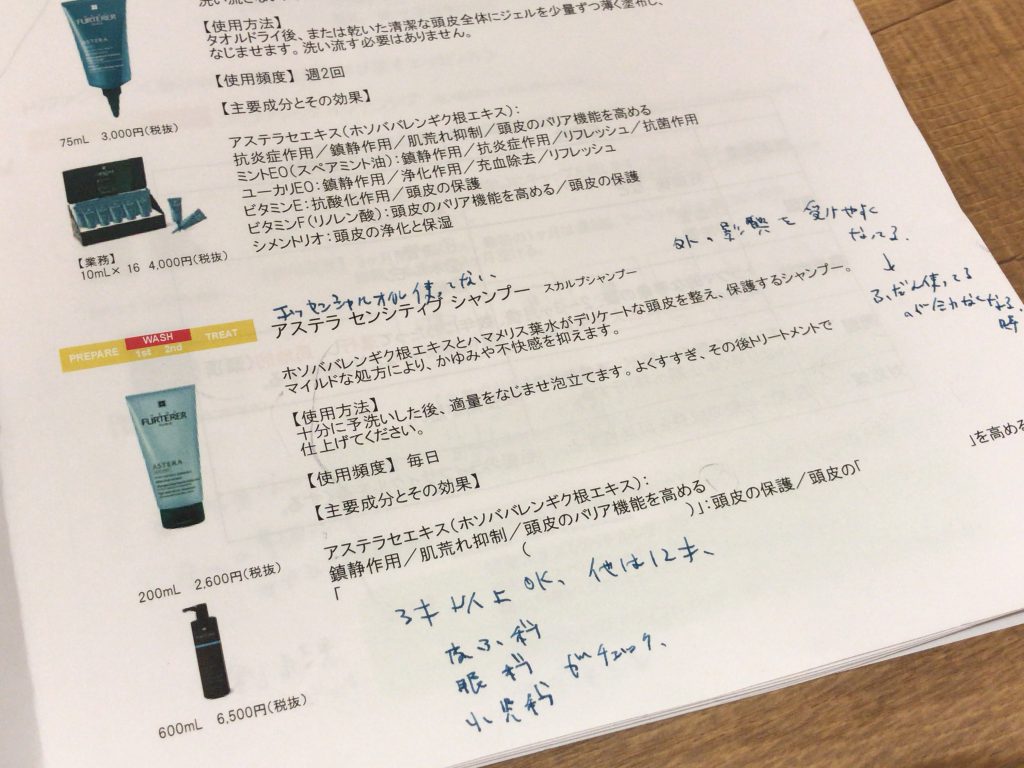 【使用方法】
タオルドライ後、または乾いた清潔な頭皮全体にジェルを少量ずつ薄く塗布し、
なじませます。洗い流す必要はありません。
【使用頻度】 週2回
【主要成分とその効果】
アステラセエキス(ホソババレンギク根エキス):
抗炎症作用/鎮静作用/肌荒れ抑制/頭皮のバリア機能を高める
ミントEO(スペアミント油):鎮静作用/抗炎症作用/リフレッシュ/抗菌作用
ユーカリEO:鎮静作用/浄化作用/充血除去/リフレッシュ
ビタミンE:抗酸化作用/頭皮の保護
ビタミンF(リノレン酸):頭皮のバリア機能を高める/頭皮の保護
シメントリオ:頭皮の浄化と保湿
FURTERER
ASTERA
75mL 3,000円(税抜)
【業務】
10mL× 16 4,000円(税抜)
外の影響を受けやすく
なってる。
↓
ふだん使ってる
のが合わなくなる
時
エッセンシャルオイル使ってない
アステラ センシティブ シャンプー スカルプシャンプー
PREPARE
WASH
1st 2nd
TREAT
ホソババレンギク根エキスとハマメリス葉水がデリケートな頭皮を整え、保護するシャンプー。
マイルドな処方により、かゆみや不快感を抑えます。
【使用方法】
十分に予洗いした後、適量をなじませ泡立てます。よくすすぎ、その後トリートメントで
仕上げてください。
【使用頻度】 毎日
【主要成分とその効果】
アステラセエキス(ホソババレンギク根エキス):
鎮静作用/肌荒れ抑制/頭皮のバリア機能を高める
「 ( )」:頭皮の保護/頭皮の「 」を高める
FURTERER
ASTERA
200mL 2,600円(税抜)
600mL 6,500円(税抜)
3才以上OK、他は12才、
皮ふ科
眼科 がチェック、
小児科